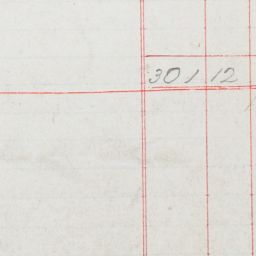 30 1 12